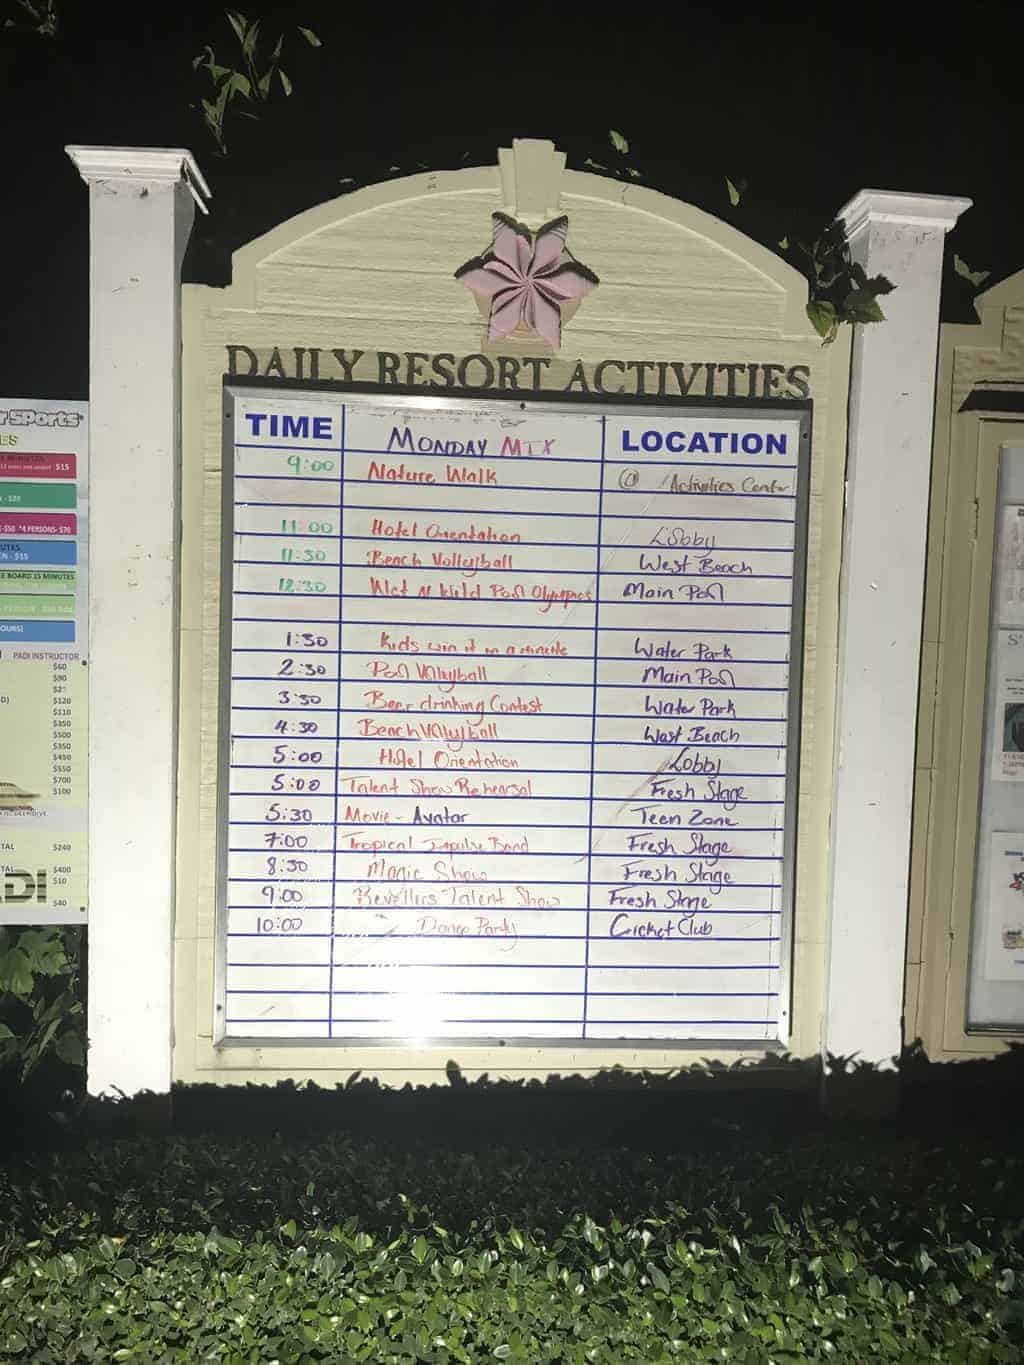 DAILY RESORT ACTIVITIES
TIME MONDAY MIX LOCATION
9:00 Nature Walk @ Activities Center
11:00 Hotel Orientation Lobby
11:30 Beach Vollyball West Beach
12:30 Wet N Wild Pool Olympics Main Pool
1:30 Kids win it in a minute Water Park
2:30 Pool Vollyball Main Pool
3:30 Beer drinking Contest Water Park
4:30 Beach Vollyball West Beach
5:00 Hotel Orientation Lobby
5:00 Talent Show Rehersal Fresh Stage
5:30 Movie - Avatar Teen Zone
7:00 Tropical Impulse Band Fresh Stage
8:30 Magic Show Fresh Stage
9:00 Talent Show Fresh Stage
10:00 Dance Party Cricket Club
r Sports
ES
$15
- $20
-$50 *4 PERSONS- $70
N - $15
E BOARD 15 MINUTES
OURS)
PADI INSTRUCTOR
$60
$90
$120
$110
$350
$500
$350
$450
$550
$700
$100
TAL $240
TAL $400
$10
$40